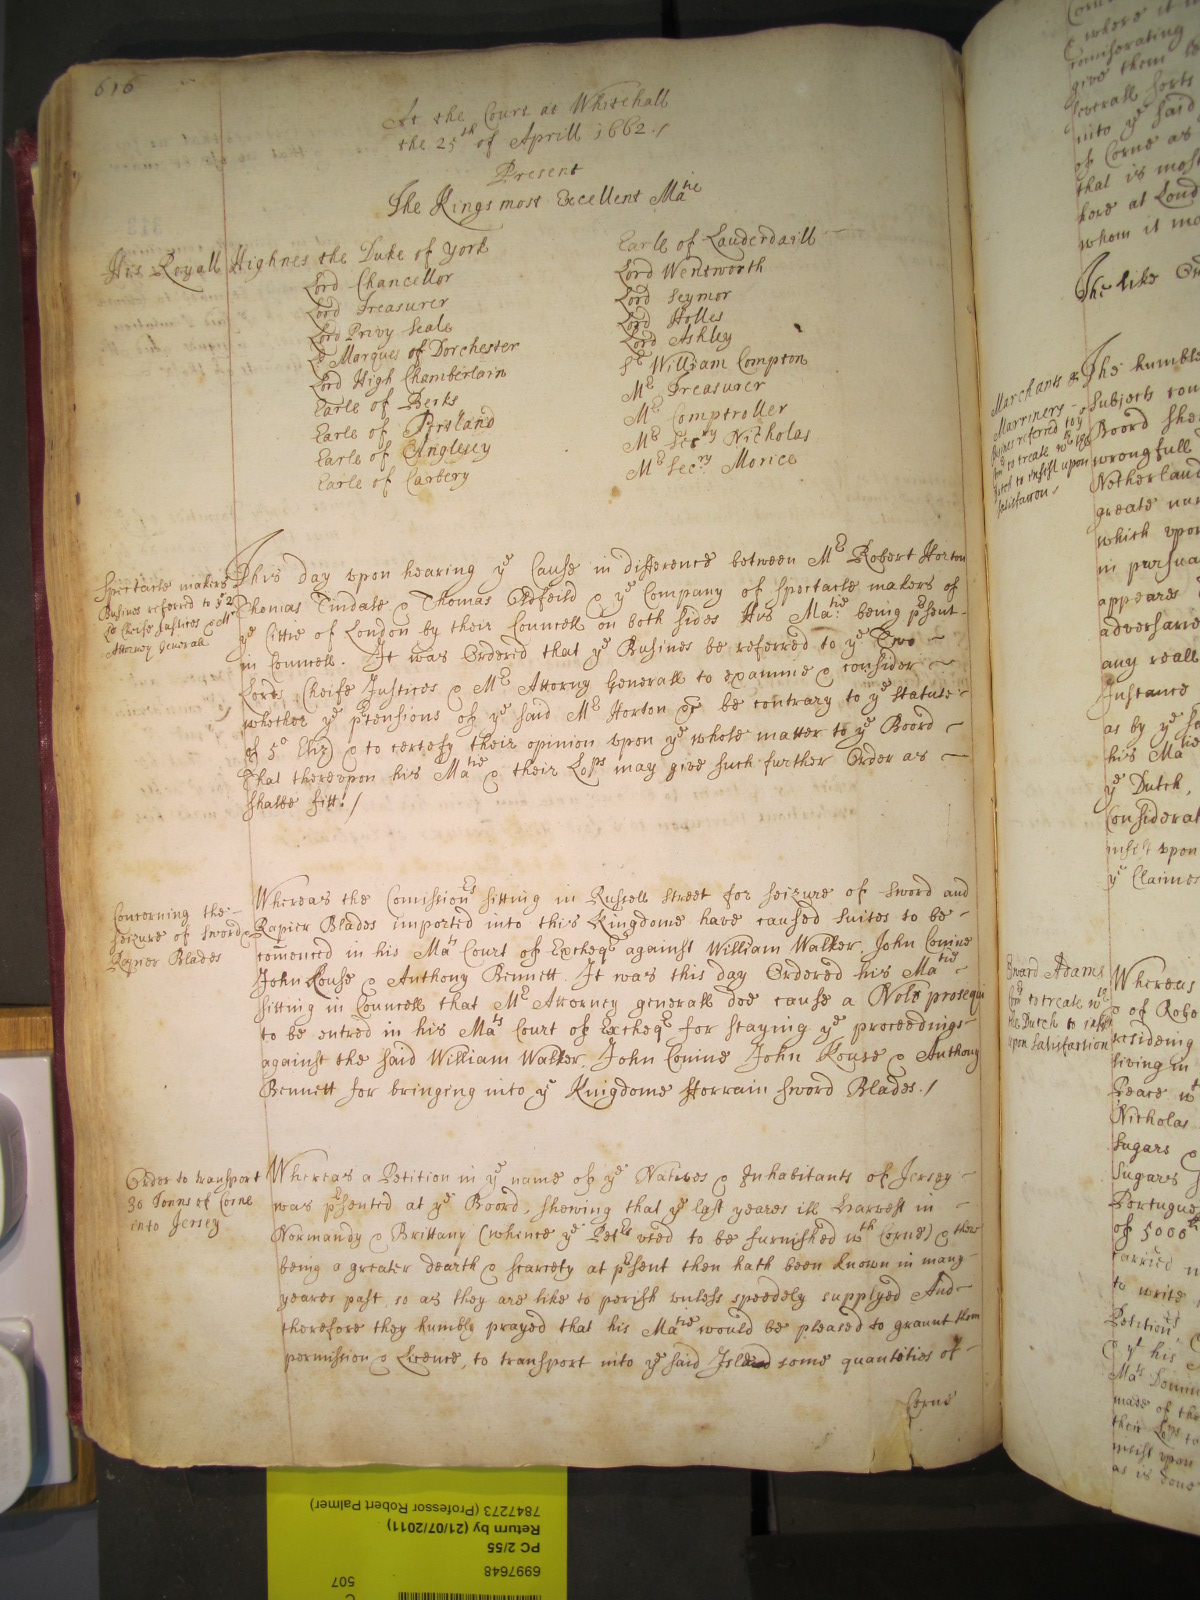 616
At the Court at Whitehall
the 25th of Aprill 1662./
Present
The Kings most Excellent Matie
His Royall Highnes the Duke of York
Lord Chancellor
Lord Treasurer
Lord Privy Seale
Ld Marques of Dorchester
Lord High Chamberlain
Earle of Berks
Earle of Portland
Earle of Anglesey
Earle of Carbery
Earle of Lauderdaill
Lord Wentworth
Lord Seymor
Lord Holles
Lord Ashley
Sr William Compton
Mr Treasurer
Mr Comptroller
Mr Secry Nicholas
Mr Secry Morice
Spectacle makers
Busines referred to ye 2
Ld Cheife Justices & Mr
Attorney Generall
This day upon hearing ye Cause in difference between Mr Robert Horton
Thomas Tindale & Thomas Oldfeild & ye Company of Spectacle makers of
ye Cittie of London by their Councell on both sides His Matie being pesent
in Councell. It was Ordered that ye Busines be referred to ye Two
Lords Cheife Justices & Mr Attorny Generall to examine & consider
whether ye ptensions of ye said Mr Horton &c be contrary to ye Statute
of 5o Eliz & to certefy their opinion upon ye whole matter to ye Boord
That thereupon his Matie & their Lops may give such further Order as
shalbe fitt./
Concerning the
seizure of sword &
Rapier Blades
Whereas the Comissionrs sitting in Russell Street for seizure of sword and
Rapier Blades imported into this Kingdome have caused suites to be
comenced in his Mats Court of Excheqr against William Walker, John Conine
John Rouse & Anthony Bennett. It was this day Ordered his Matie
sitting in Councell that Mr Attorney generall doe cause a Nole prosequi
to be entred in his Mats Court of Excheqr for staying ye proceedings
against the said William Walker, John Conine John Rouse & Anthony
Bennett for bringing into ye Kingdome fforrain sword Blades./
Order to transport
30 Tonns of Corne
into Jersey
Whereas a Petition in ye name of ye Natives & Inhabitants of Jersey
was pesented at ye Boord, shewing that ye last yeares ill Harvest in
Normandy & Brittany (whence ye Petrs used to be furnished wth Corne) & there
being a greater dearth & scarcety at pesent then hath been known in many
yeares past, so as they are like to perish unless speedely supplyed And
therefore they humbly prayed that his Matie would be pleased to graunt them
permission & Licence, to transport into ye said Island some quantities of
Corne
where it
give them
severall sorts
into ye said
of Corne as
that is most
here at Lond
whom it ma
The like Or
Merchants &
Marriners
satisfaction
The humble
Subjects
Boord she
wrongfull
Netherland
greate
which upon
in pursua
appeares
adversarie
any reall
Instance
as by ye
his Matie
ye Dutch,
Considerat
insist upon
ye Claimes
Edward Adams
to treate wth
the Dutch to insist
upon satisfaction
Whereas
& of Robe
resideing
living in
Peace wt
Nicholas
Sugars &
Sugares
Portugue
of 5000
carried
to write
Petition
& yt his
Mats Domin
made of the
their Lops to
insist upon
as is done
C
507
6997648
PC 2/55
Return by (21/07/2011)
7847273 (Professor Robert Palmer)